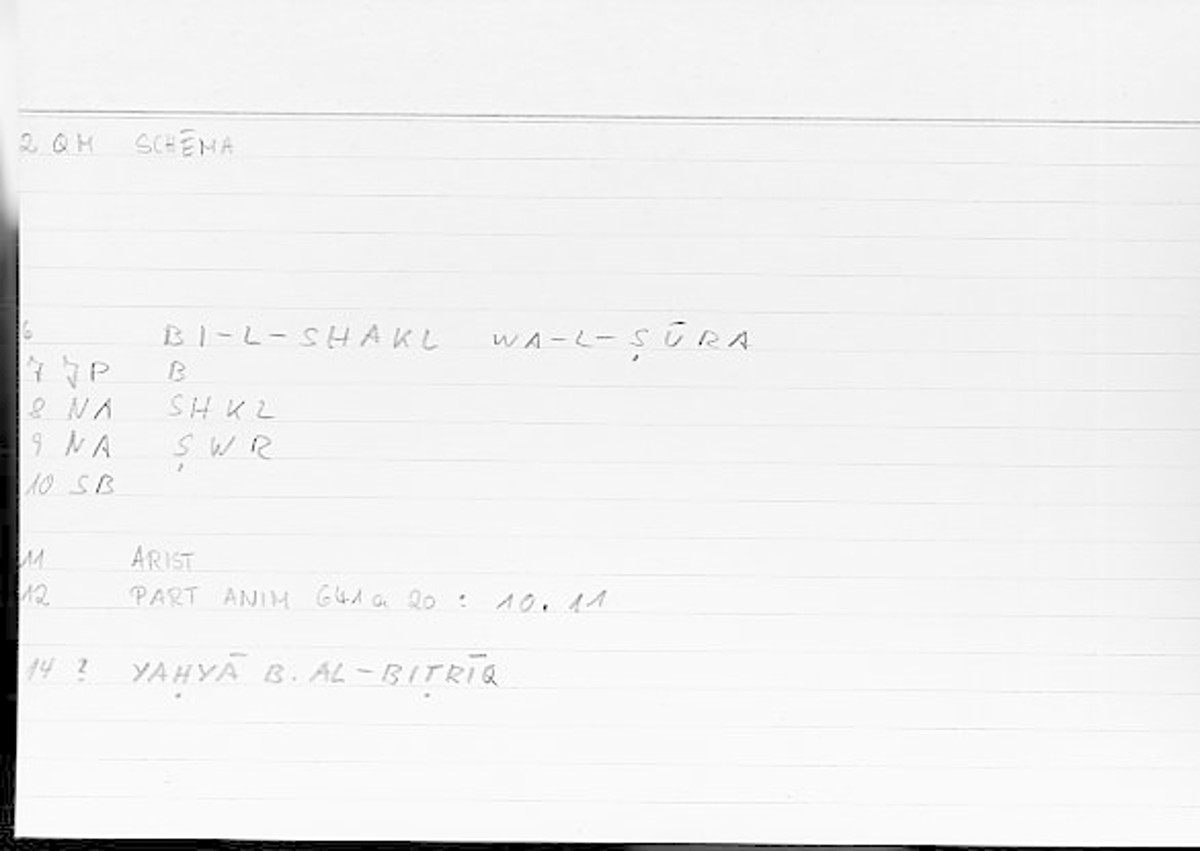 2 QM SCHĒMA
6 BI-L-SHAKL WA-L-ṢŪRA
7 JP B
8 NA SHKL
9 NA ṢWR
10 SB
11 ARIST
12 PART ANIM 641a 20 : 10.11
14 ? YAḤYĀ B. AL-BIṬRĪQ